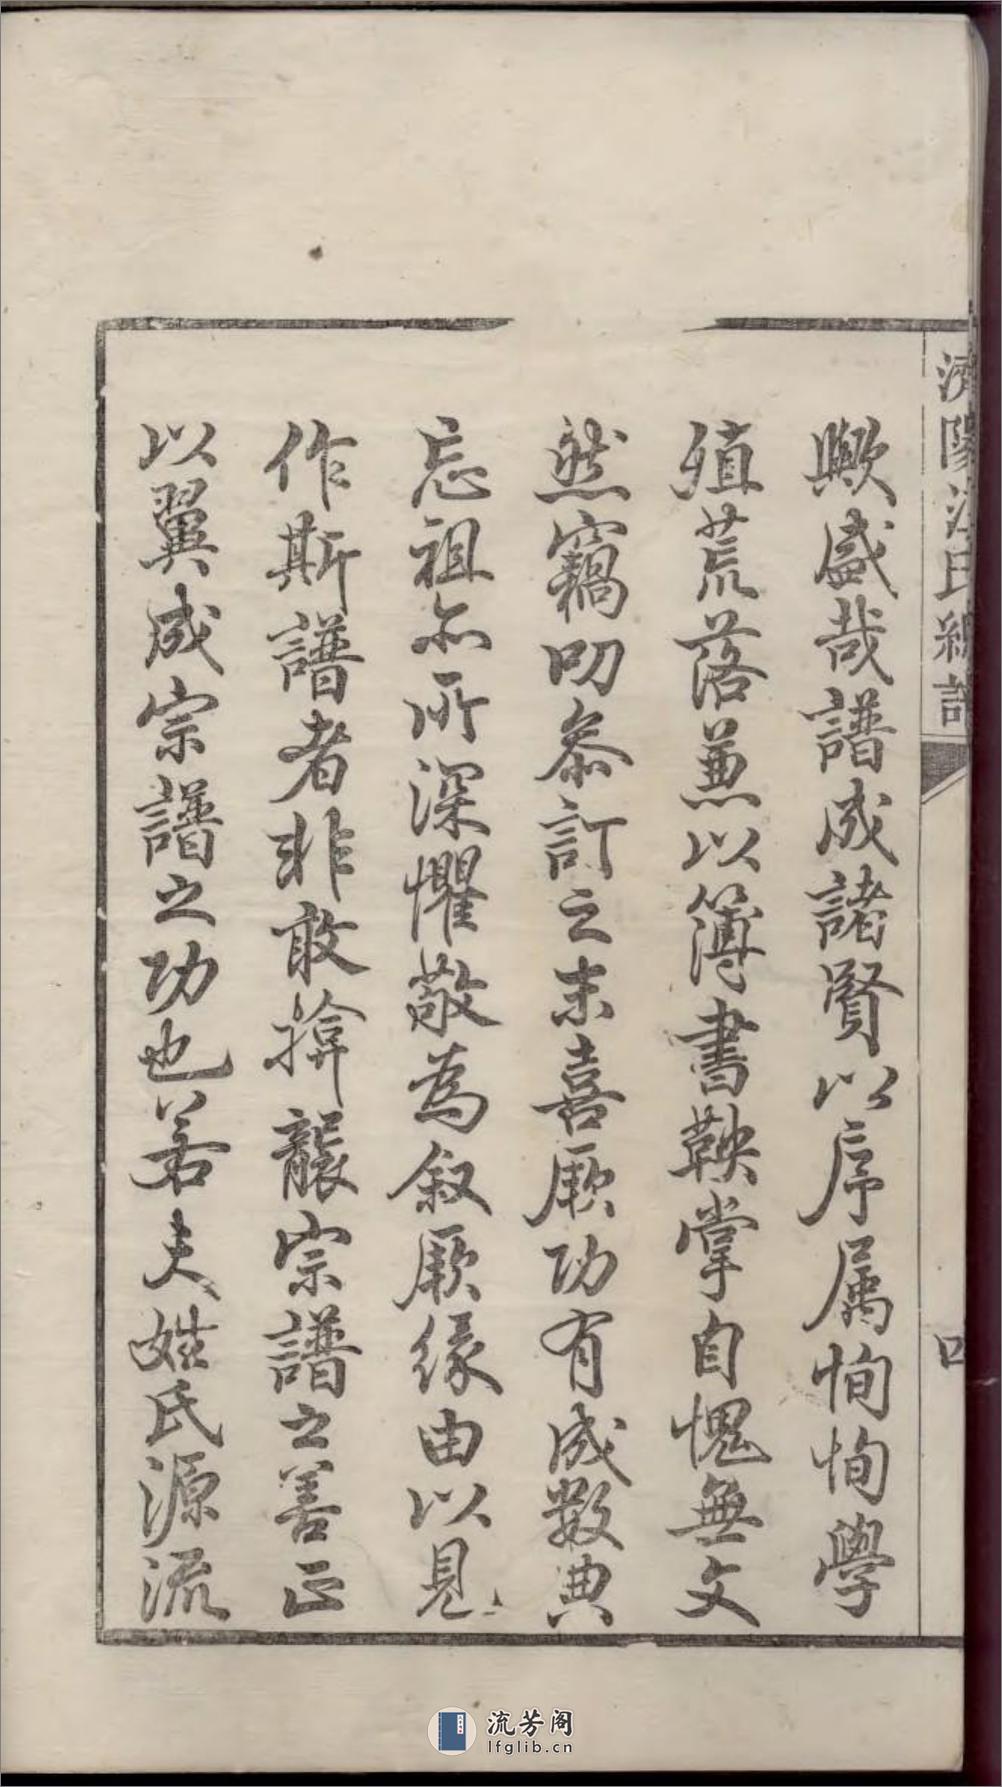 濟陽江氏統譜
四
歟盛哉譜成諸賢以序属恂恂學
殖荒落兼以簿書鞅掌自愧無文
然竊叨叅訂之末喜厥功有成數典
忘祖尒所深懼敬為叙厥緣由以見
作斯譜者非敢揜襲宗譜之善正
以翼成宗譜之功也若夫姓氏源流
流芳阁
lfglib.cn